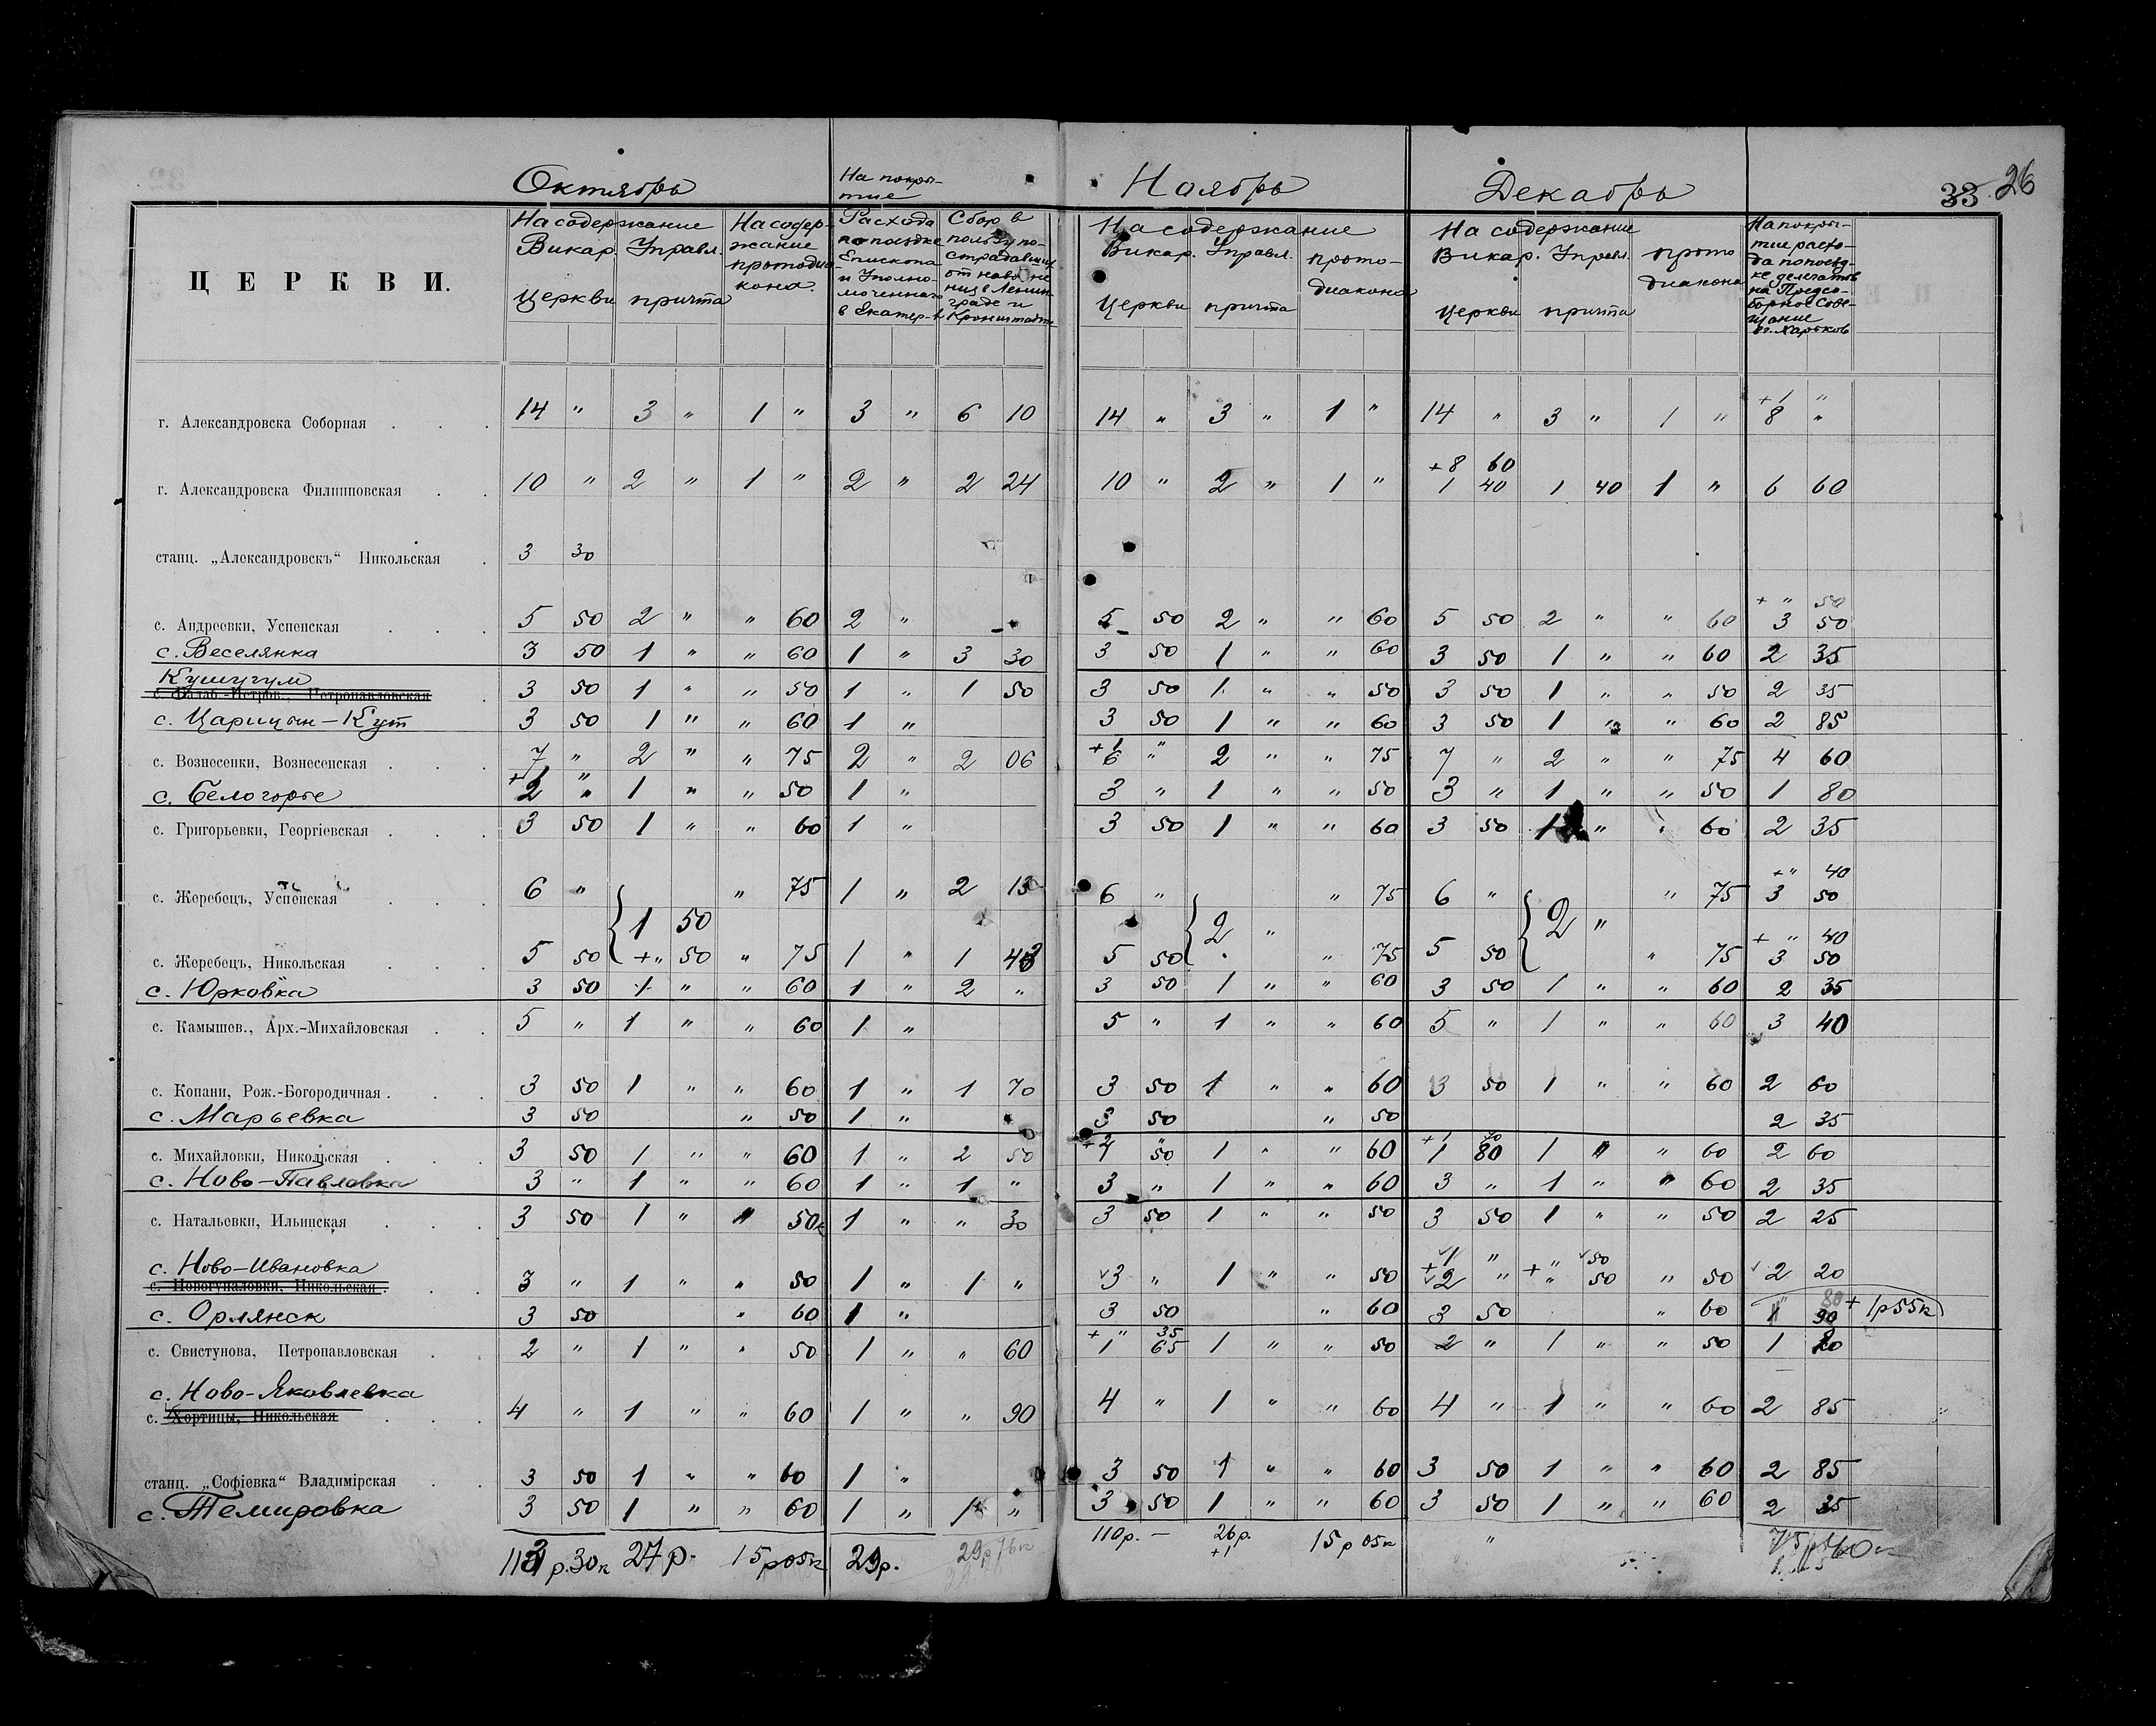 Октябрь На покры-
тие Ноябрь Декабрь 33 26
ЦЕРКВИ.
На содержание
Викар. Управл.
Церкви причта
На содер-
жание
протодиа-
кона.
Расхода
по поездке
Епископа
и Уполно-
моченного
в Екатер-
Сбор в
пользу по-
страдавших
от наводне
ния в Ленин-
граде и
Кронштадте
На содержание
Викар. Управл. прото-
диакона
Церкви причта
На содержание
Викар. Управл. прото
диакона
Церкви причта
На покры-
тие расхо-
да по поезд-
ке делегатов
на Предсо-
борное Сове-
щание
в г. Харьков
+1 "
г. Александровска Соборная 14 " 3 " 1 " 3 " 6 10 14 " 3 " 1 " 14 " 3 " 1 " 8 "
+8 60
г. Александровска Филипповская 10 " 2 " 1 " 2 " 2 24 10 " 2 " 1 " 1 40 1 40 1 " 6 60
станц. „Александровскъ“ Никольская 3 30
+ " 50
с. Андреевки, Успенская 5 50 2 " " 60 2 " 5 50 2 " " 60 5 50 2 " " 60 3 50
с. Веселянка 3 50 1 " " 60 1 " 3 30 3 50 1 " " 60 3 50 1 " " 60 2 35
Кушугум
с. Балаб.-Петров., Петропавловская 3 50 1 " " 50 1 " 1 50 3 50 1 " " 50 3 50 1 " " 50 2 35
с. Царицын-Кут 3 50 1 " " 60 1 " 3 50 1 " " 60 3 50 1 " " 60 2 85
+1 "
с. Вознесенки, Вознесенская 7 " 2 " " 75 2 " 2 06 6 " 2 " " 75 7 " 2 " " 75 4 60
+1 "
с. Белогорье 2 " 1 " " 50 1 " 3 " 1 " " 50 3 " 1 " " 50 1 80
с. Григорьевки, Георгіевская 3 50 1 " " 60 1 " 3 50 1 " " 60 3 50 1 " " 60 2 35
+ " 40
с. Жеребецъ, Успенская 6 " " 75 1 " 2 13 6 " " 75 6 " " 75 3 50
1 50 2 " 2 "
+ " 40
с. Жеребецъ, Никольская 5 50 + " 50 " 75 1 " 1 43 5 50 " 75 5 50 " 75 3 50
с. Юрковка 3 50 1 " " 60 1 " 2 " 3 50 1 " " 60 3 50 1 " " 60 2 35
с. Камышев., Арх.-Михайловская 5 " 1 " " 60 1 " 5 " 1 " " 60 5 " 1 " " 60 3 40
с. Копани, Рож.-Богородичная 3 50 1 " " 60 1 " 1 70 3 50 1 " " 60 3 50 1 " " 60 2 60
с. Марьевка 3 50 " 50 1 " 3 50 " 50 2 35
+1 70
с. Михайловки, Никольская 3 50 1 " " 60 1 " 2 50 50 1 " " 60 1 80 1 " " 60 2 60
с. Ново-Павловка 3 " 1 " " 60 1 " 1 " 3 " 1 " " 60 3 " 1 " " 60 2 35
с. Натальевки, Ильинская 3 50 1 " " 50 1 " " 30 3 50 1 " " 50 3 50 1 " " 50 2 25
с. Ново-Ивановка +1 " + " 50
с. Новогупаловки, Никольская 3 " 1 " " 50 1 " 1 " 3 " 1 " " 50 2 " " 50 " 50 2 20
с. Орлянск 3 50 " 60 1 " 3 50 " 60 3 50 " 60 1 + 1р 55к
+ " 35
с. Свистунова, Петропавловская 2 " 1 " " 50 1 " " 60 1 65 1 " " 50 2 " 1 " " 50 1
с. Ново-Яковлевка
с. Хортицы, Никольская 4 " 1 " " 60 1 " " 90 4 " 1 " " 60 4 " 1 " " 60 2 85
станц. „Софіевка“ Владимірская 3 50 1 " " 60 1 " 3 50 1 " " 60 3 50 1 " " 60 2 85
с. Темировка 3 50 1 " " 60 1 " 1 " 3 50 1 " " 60 3 50 1 " " 60 2 35
113 р. 30к 27 р. 15 р 05к 29р. 29р 76к 110 р. — 26 р. 15 р 05к "
+1